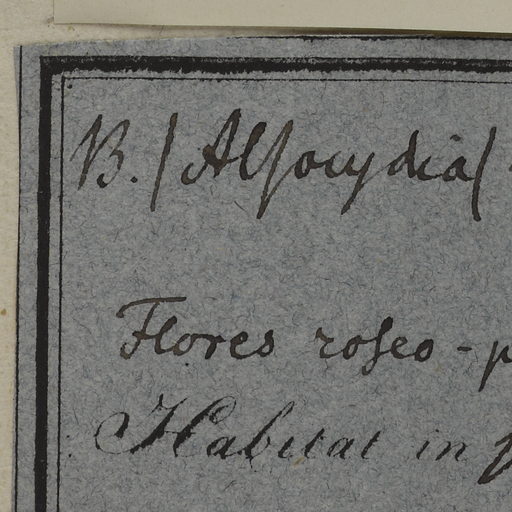 B. / Alſocydia /
Flores roſeo - p
Habitat in p